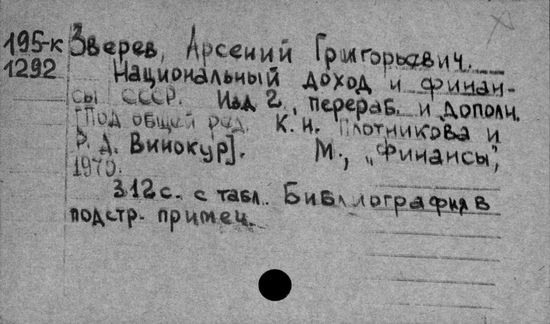 195-к Зверев, Арсений Григорьевич.
1292 Национальный доход и финан-
сы СССР. Изд 2., перераб. и дополн.
[Под общей ред. К.Н. Плотникова и
Р.Д. Винокур]. М., „Финансы",
1970.
312 с. с табл. Библиография в
подстр. примеч.